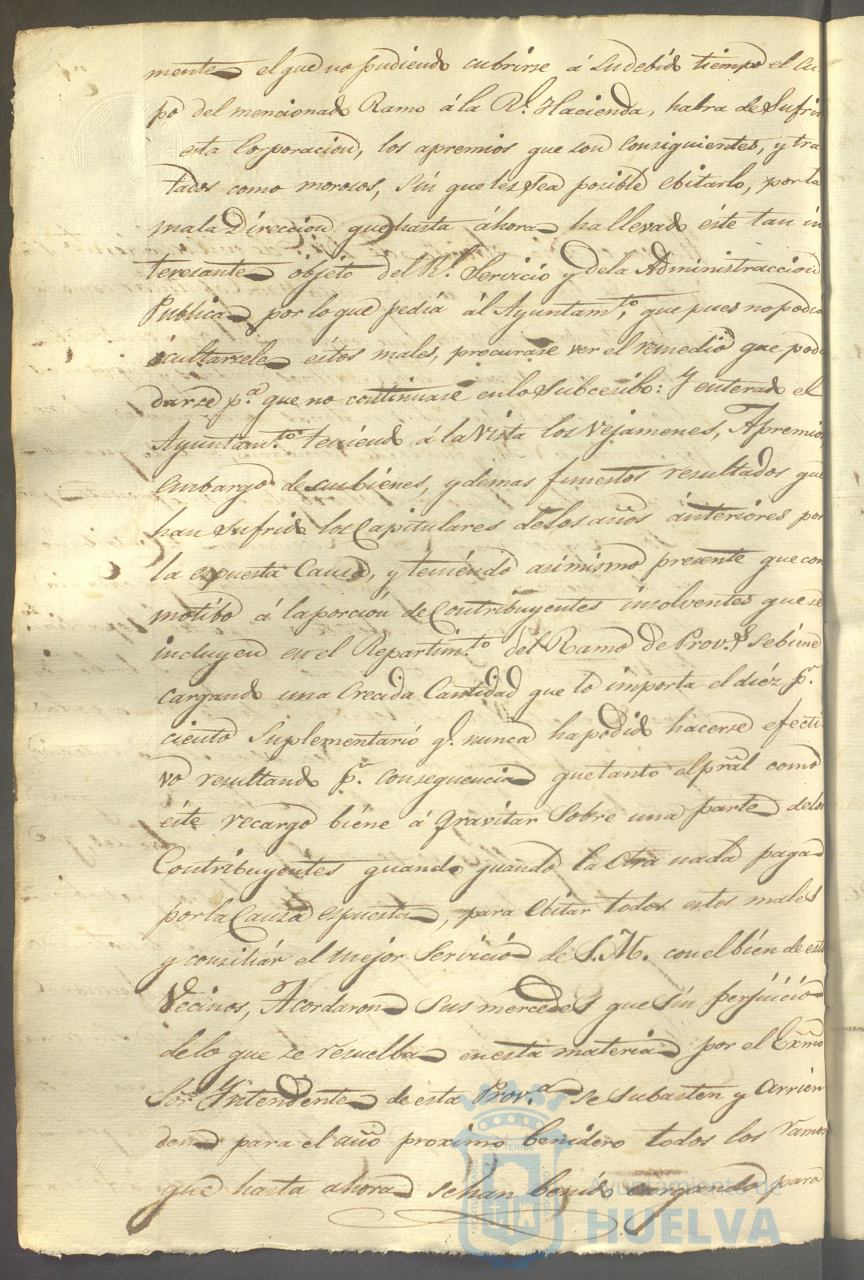 mente el que no pudiendo cubrirse á su debido tiempo el cu
po del mencionado Ramo á la Rl. Hacienda, habra de Sufrir
esta Corporacion, los apremios que son consiguientes, y tra
tados como morosos, sin que les sea posible ebitarlo, por la
mala Direccion que hasta áhora ha llevado este tan in
teresante objeto del Rl. Servicio y dela Administraccion
Publica por lo que pedia ál Ayuntamto. que pues no podia
ocultarcele estos males, procurase ver el remedio que podia
darse pa. que no continuase en lo Subcesibo: Y enterado el
Ayuntamto. teniendo á la Vista los Vejamenes, Apremios
embargo de sus bienes, y demas funestos resultados que
han sufrido los Capitulares delos años ánteriores por
la espuesta Causa, y teniendo asimismo presente que con
motibo á la porcion de Contribuyentes insolventes que se
incluyen en el Repartimto. del Ramo de Provs. se biene
cargando una Creada Cantidad que lo importa el diéz pr.
ciento Suplementario q. nunca ha podido hacerse efecti
vo resultando pr. consequencia que tanto el pral como
este recargo biene á gravitar Sobre una parte delos
Contribuyentes quando quando la Otra nada paga
por la Causa espuesta, para ebitar todos estos males
y consiliár el mejor Servicio de S. M. con el bien de estos
Vecinos, Acordaron Sus mercedes que sin perjuicio
de lo que se resuelba en esta materia por el Exmo
Sor. Yntendente de esta Prova. se Subasten y Arrien
den para el año proximo benidero todos los ramos
que hasta ahora se han benido cargando para
Ayuntamiento de
HUELVA